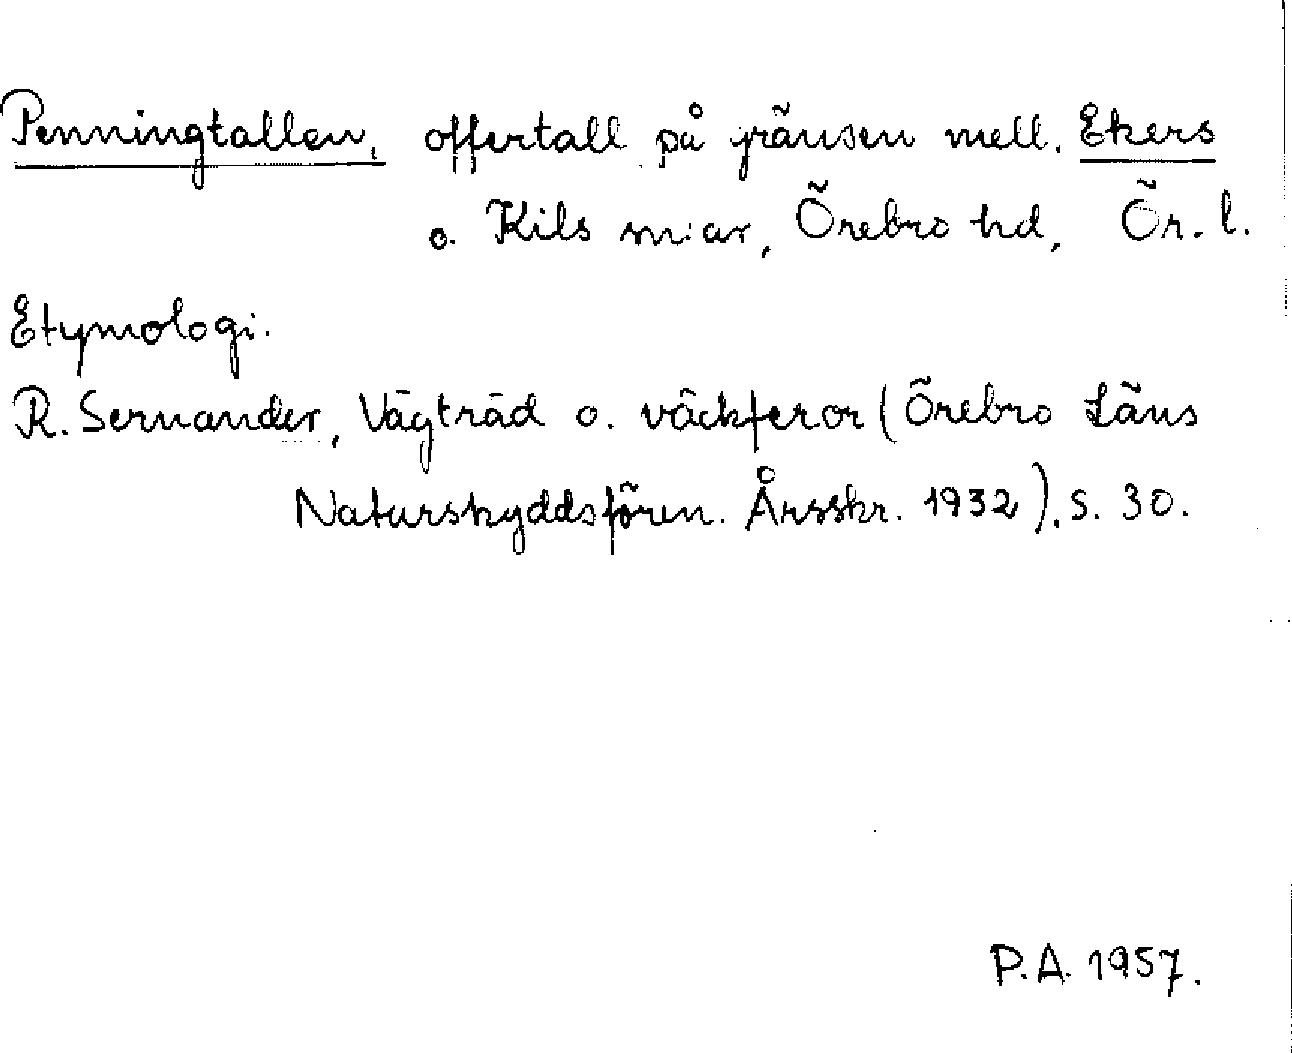 Penningtallen, offertall på gränsen mell. Ekers
o. Kils sn:ar, Örebro hd, Ör. l.
Etymologi.
R. Sernander, Vägträd o. väckferor (Örebro Läns
Naturskyddsfören. Årsskr. 1932), s. 30.
P.A. 1957.